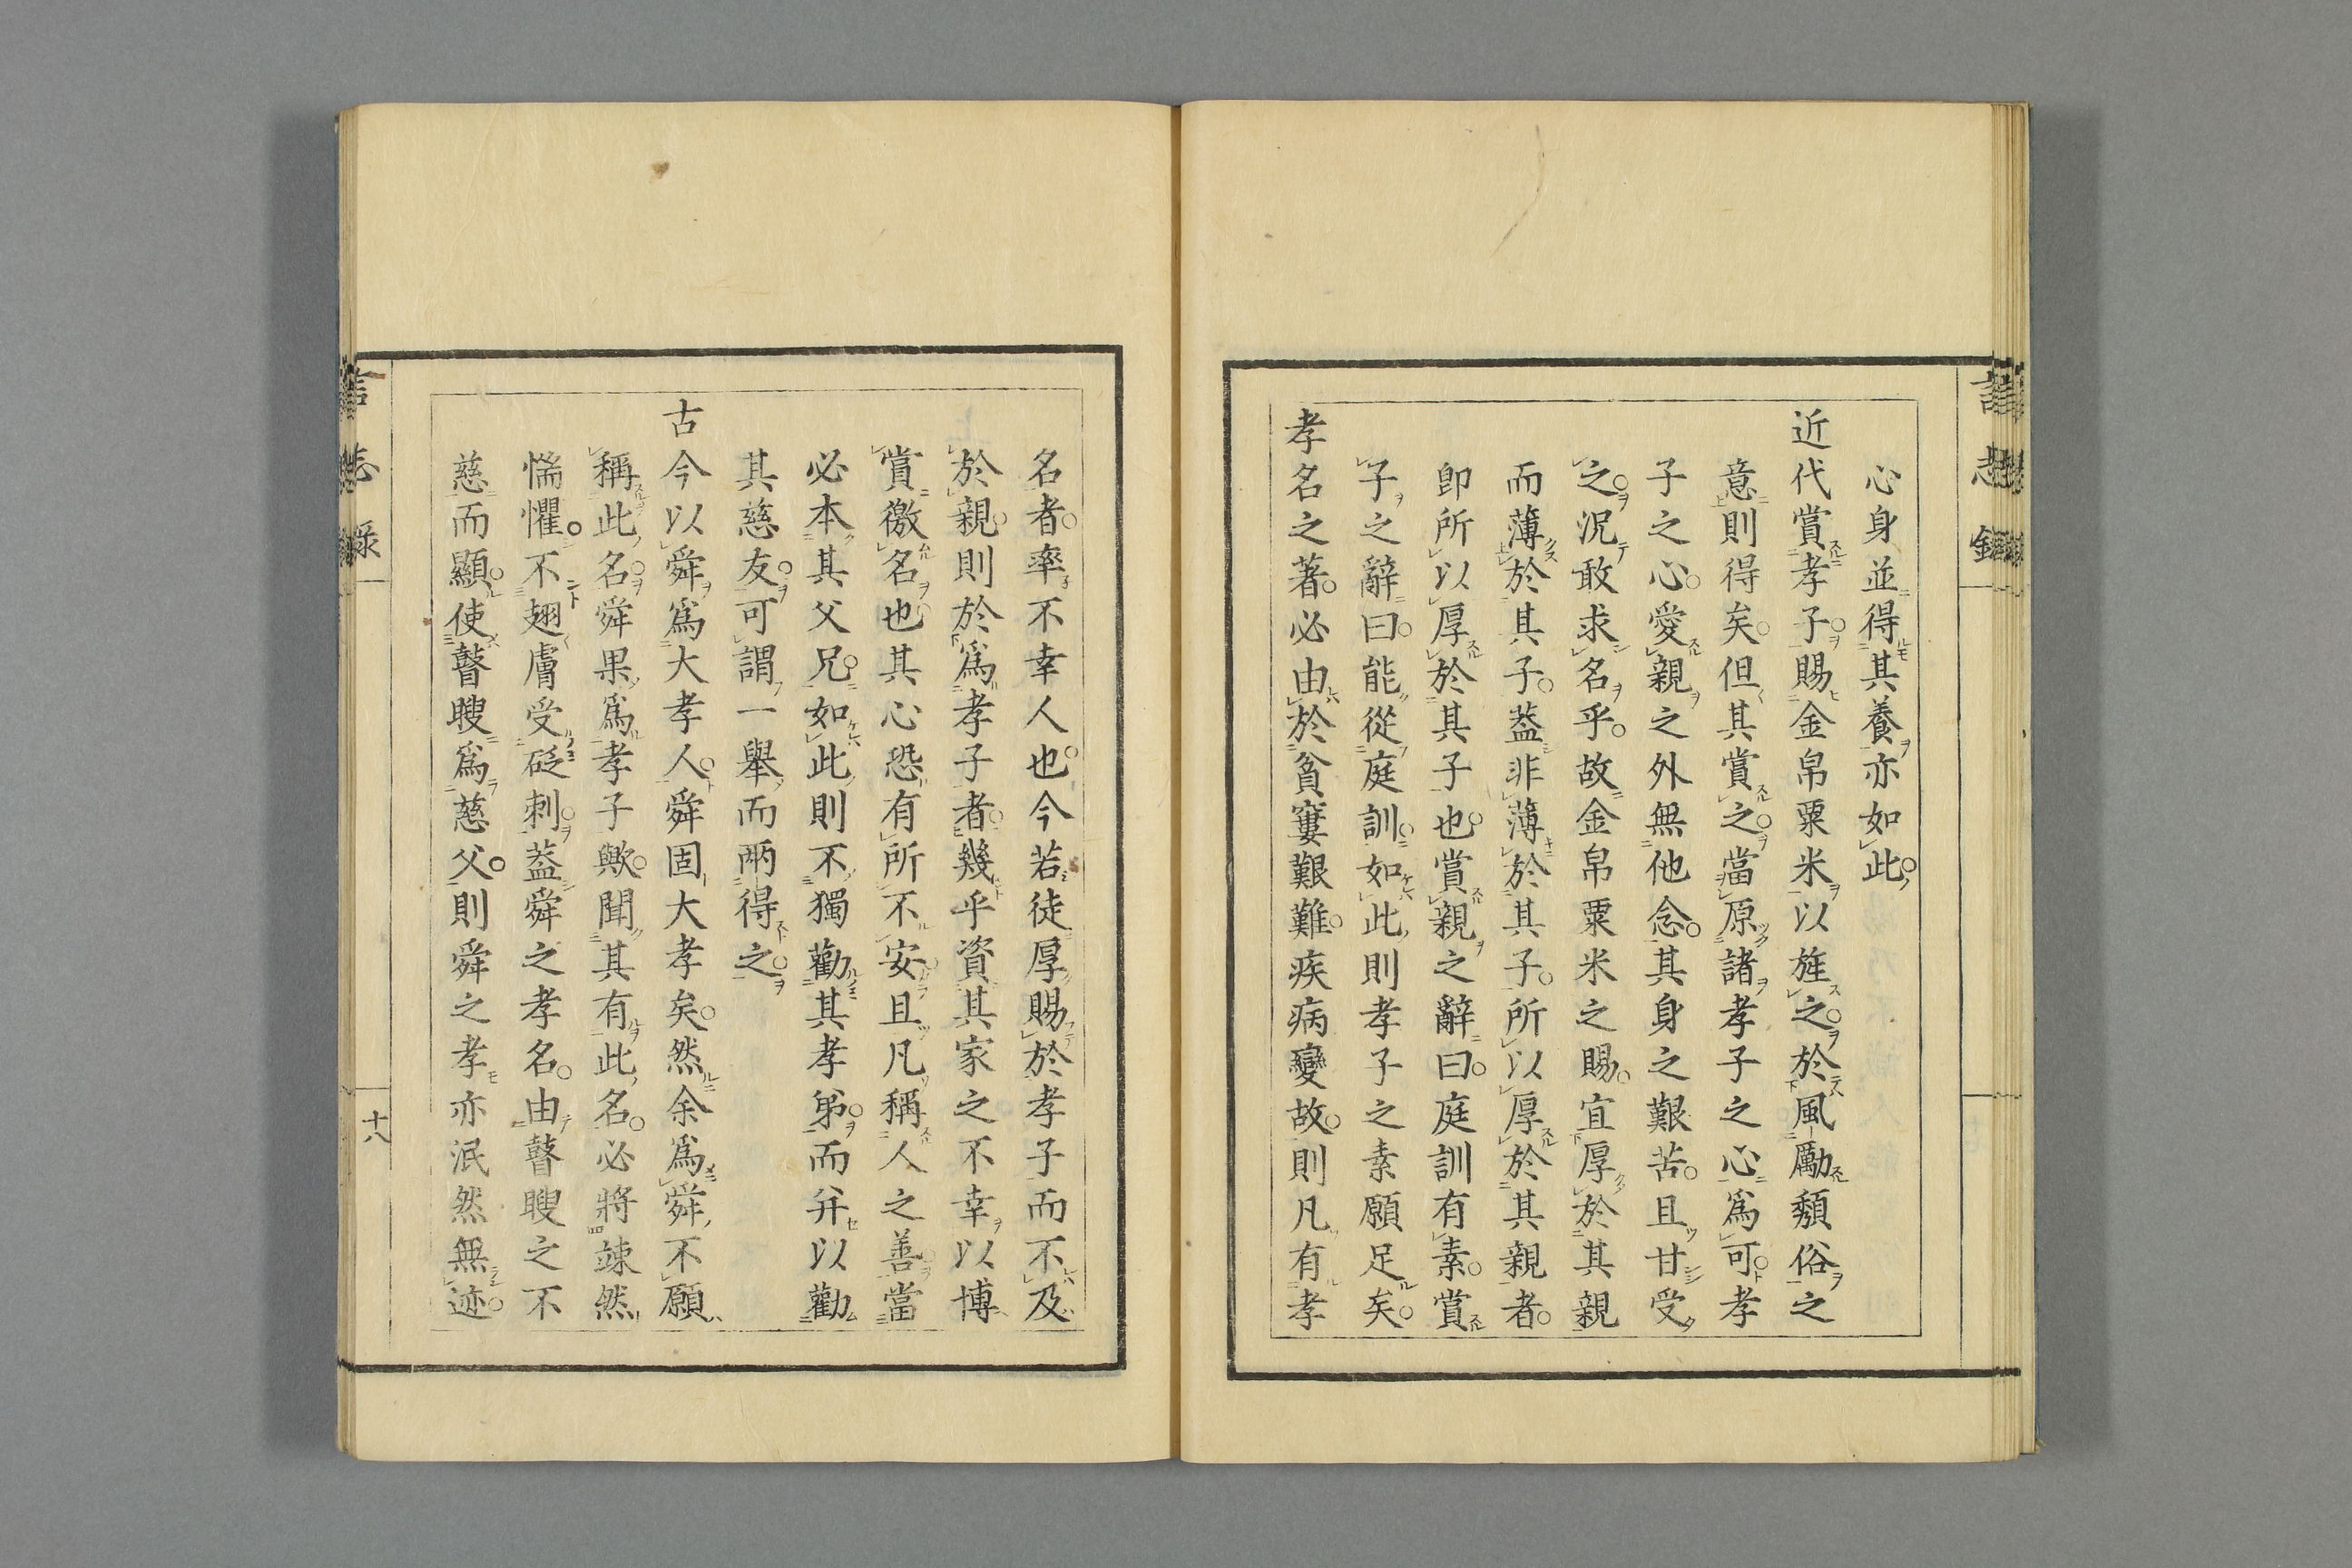 心身並得其養亦如此
近代賞孝子賜金帛粟米以旌之於風勵頽俗之
意則得矣但其賞之當原諸孝子之心為可孝
子之心愛親之外無他念其身之艱苦且甘受
之況敢求名乎故金帛粟米之賜宜厚於其親
而薄於其子蓋非薄於其子所以厚於其親者
卽所以厚於其子也賞親之辭曰庭訓有素賞
子之辭曰能從庭訓如此則孝子之素願足矣
孝名之著必由於貧窶艱難疾病變故則凡有孝
名者率不幸人也今若徒厚賜於孝子而不及
於親則於為孝子者幾乎資其家之不幸以博
賞徼名也其心恐有所不安且凡稱人之善當
必本其父兄如此則不獨勸其孝弟而幷以勸
其慈友可謂一舉而兩得之
古今以舜爲大孝人舜固大孝矣然余爲舜不願
稱此名舜果爲孝子歟聞其有此名必將竦然
惴懼不翅膚受砭刺蓋舜之孝名由瞽瞍之不
慈而顯使瞽瞍爲慈父則舜之孝亦泯然無迹
言志錄
十八